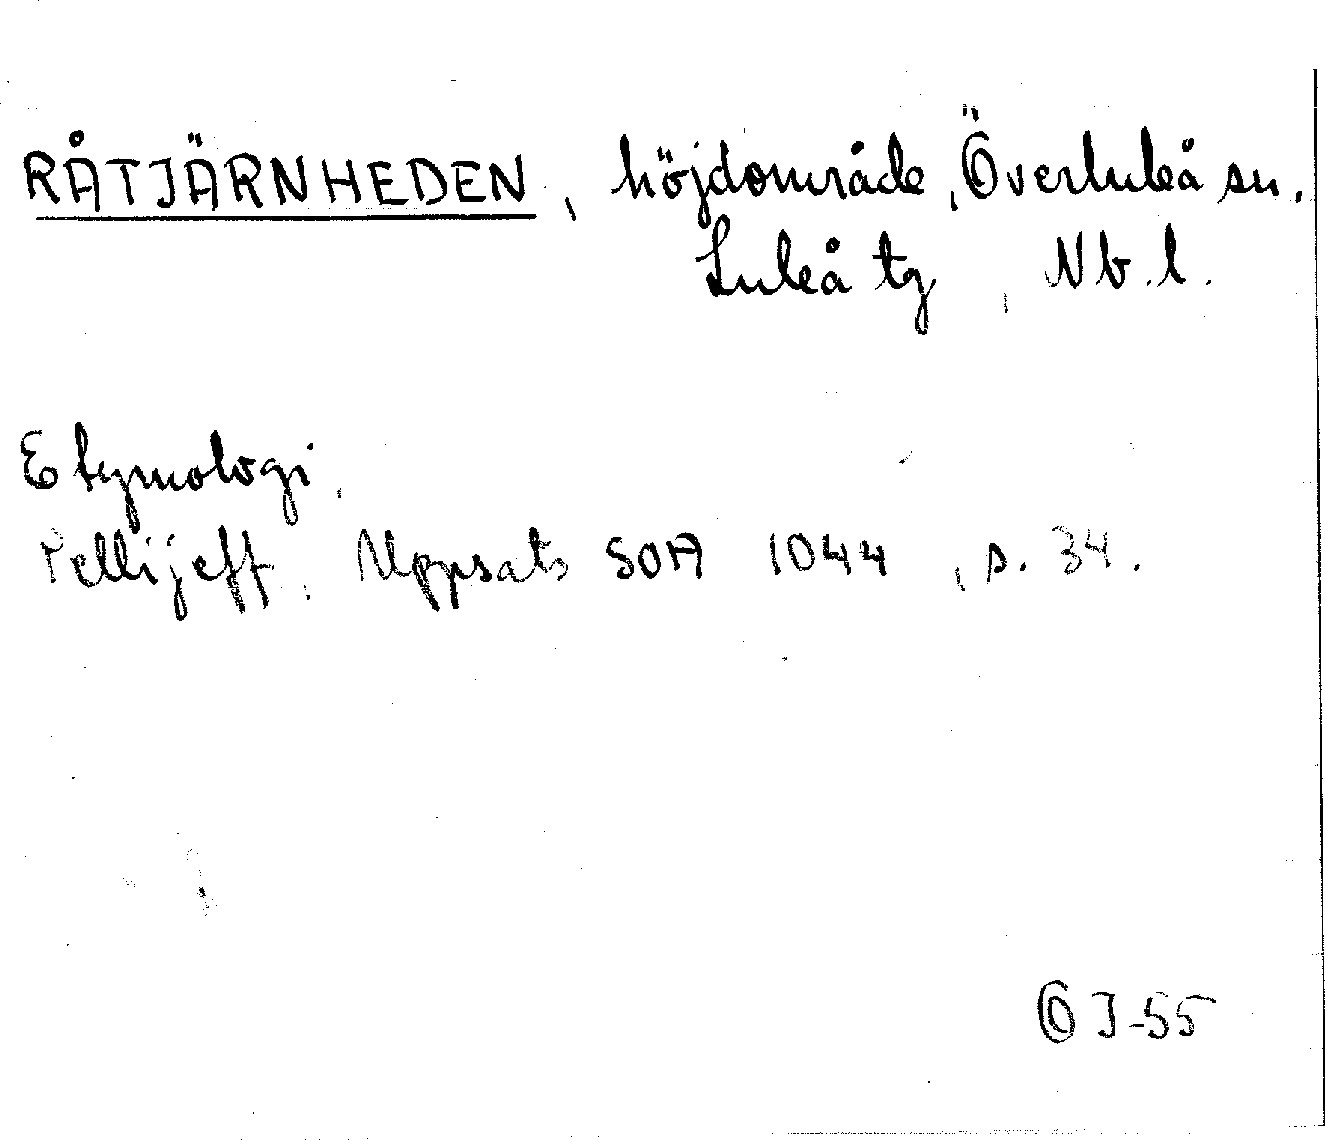 RÅTJÄRNHEDEN, höjdområde, Överluleå sn.
Luleå tg, Nb.l.
Etymologi,
Pellijeff, Uppsats SOA 1044, s. 34.
OJ-55